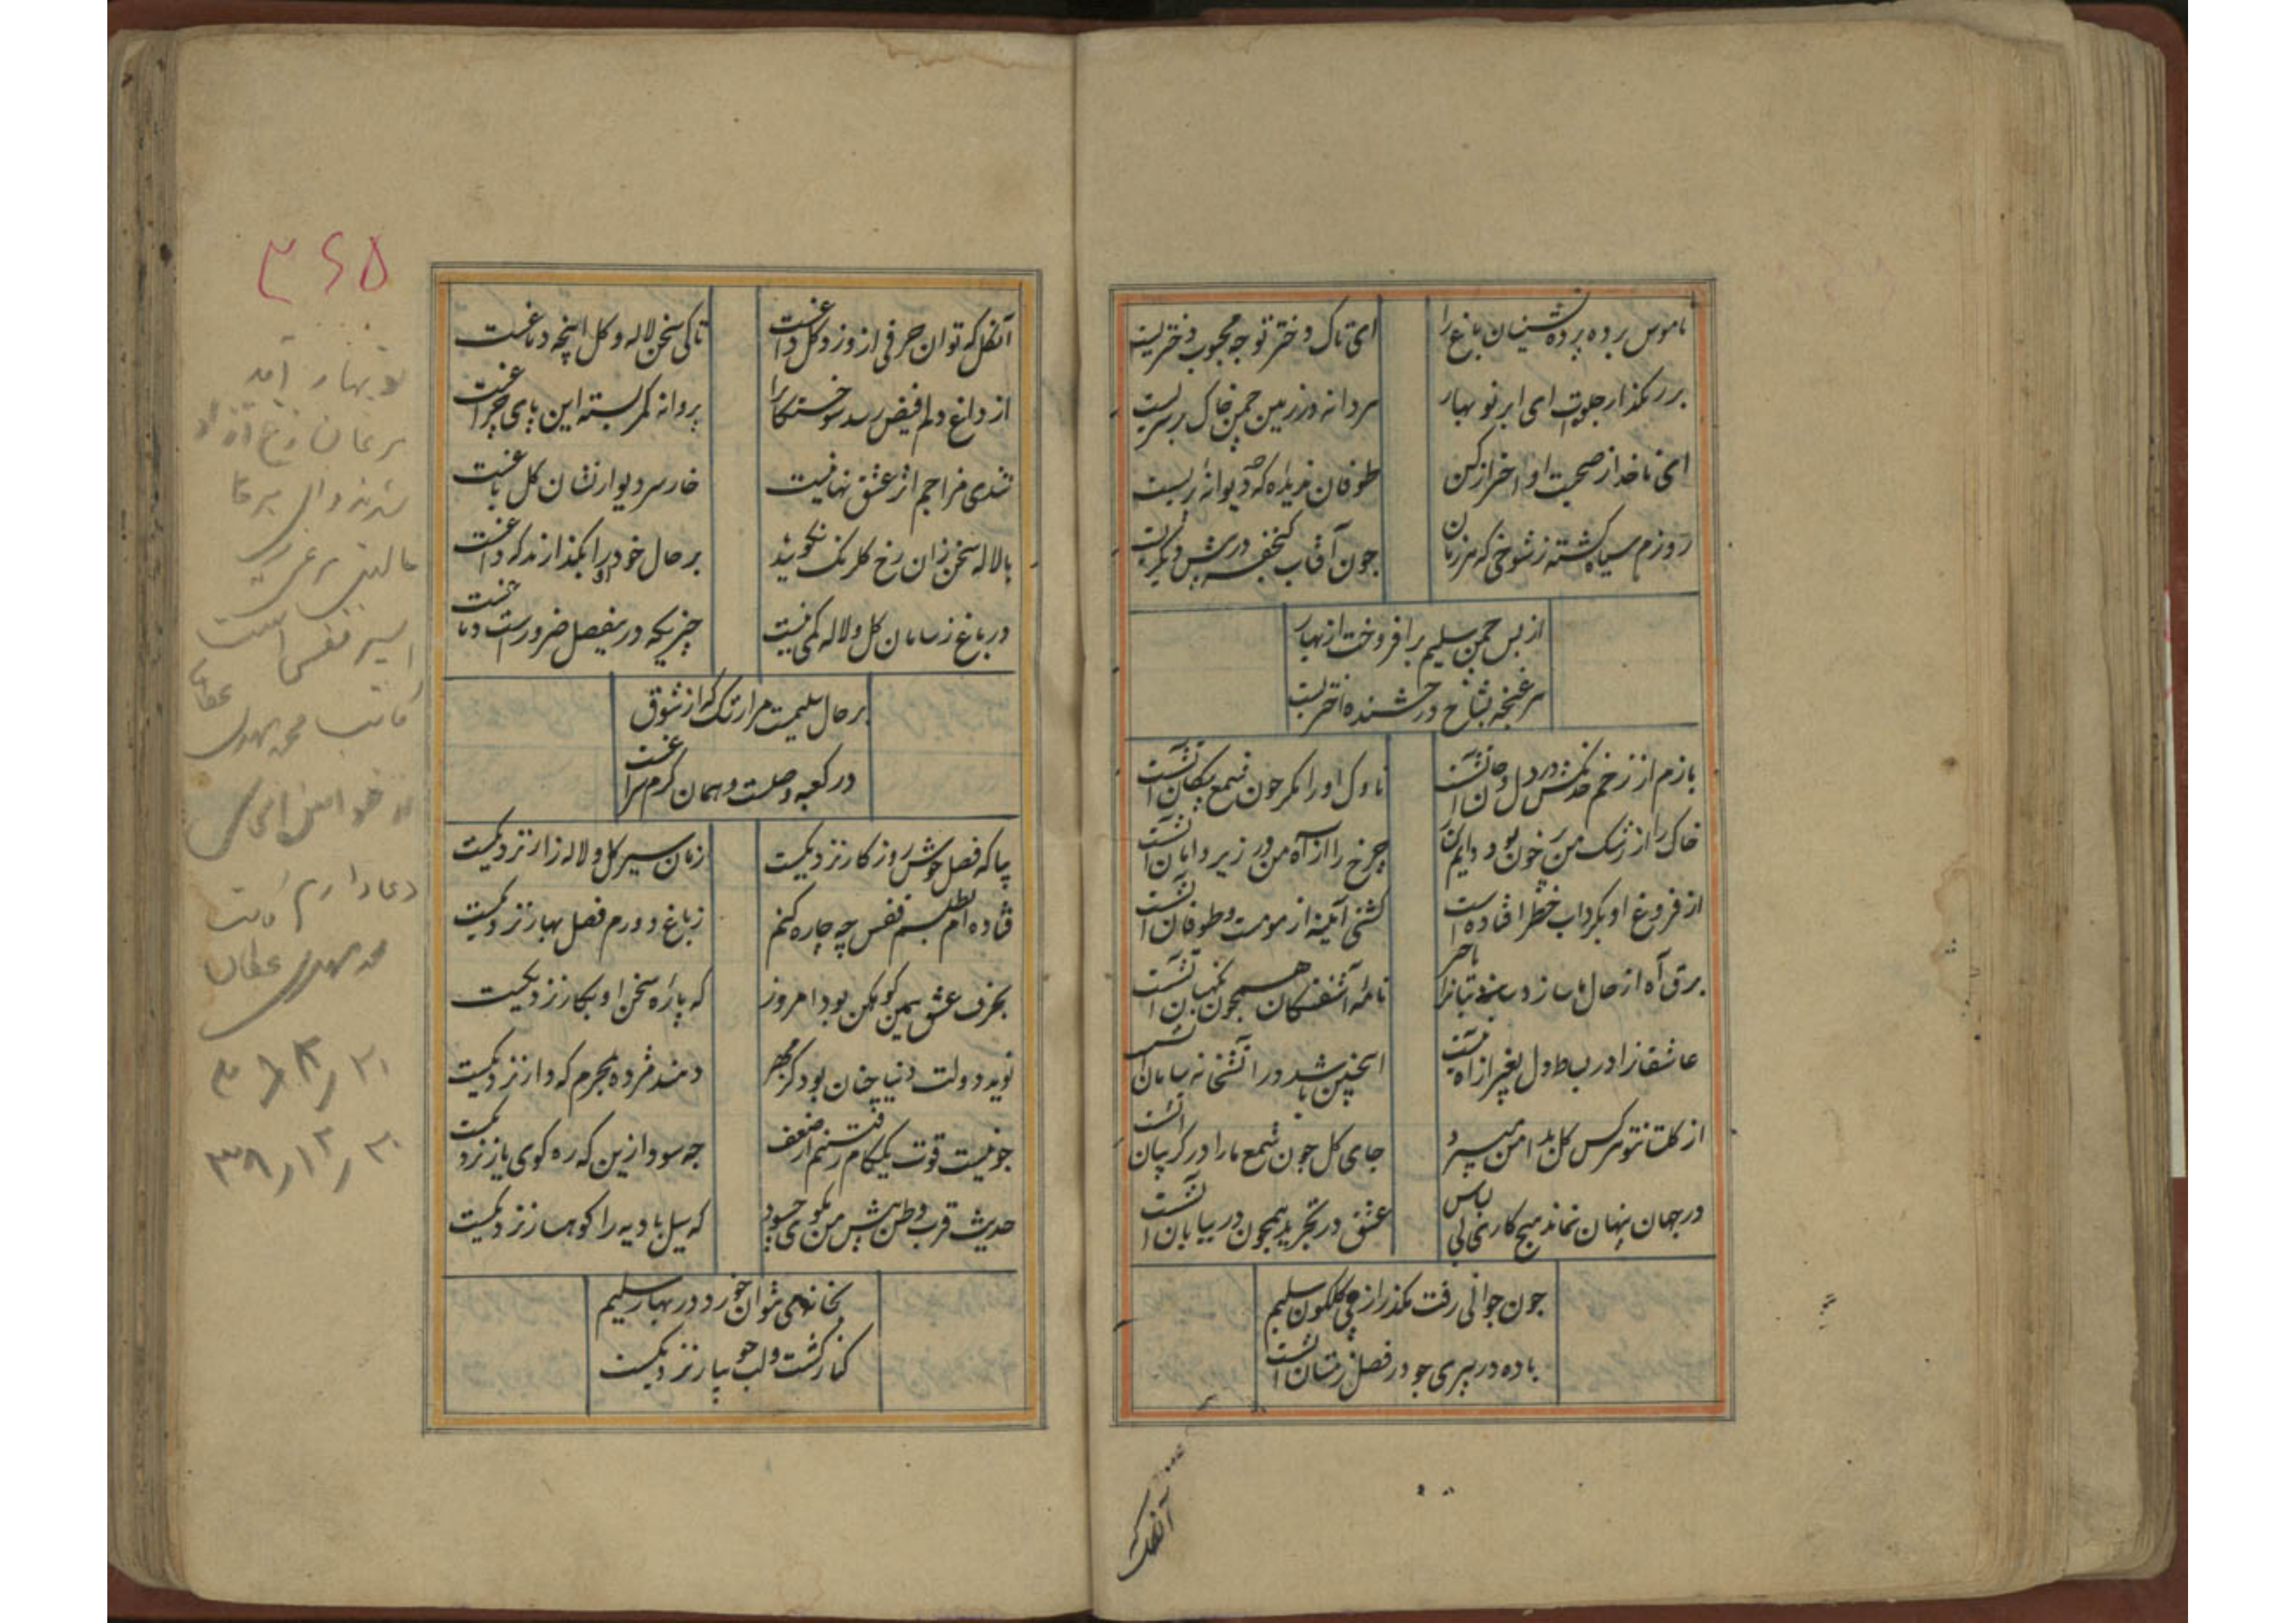 ناموس برده پرده نشینان باغ را
ای تاک دختر تو چه محبوب دختریست
بر رهگذار جلوه‌ات ای ابر نو بهار
در زمین چمن خاک بر سریست
ای ناخدا از صحبت او احتراز کن
طوفان ندیده‌ که دیوانه بریست
روزم سیاه گشته ز شوخی که هر زمان
چون آفتاب گنجفه در پیش دیگریست
از بس چمن سلیم برافروخت از بهار
سر غنچه بشاخ درخشنده اختریست
بازم از زخم خدنگش در دل و جان آتشست
ناوک او را مگر چون شمع پیکان آتشست
خاک را از اشک من پر خون بود دایم کنار
چرخ را از آه من در زیر دامان آتشست
از فروغ او بگرداب خطر افتاده است
کشتی آیینه از مومست و طوفان آتشست
برق آه از حال ما سازد بتانرا با خبر
نامه آشفتگان همچون نگهبان آتشست
عاشقانرا در بساط دل بغیر از آه نیست
اینچنین باشد در آتشخانه سامان آتشست
از گلستان تو هر کس گل بدامن میبرد
جای گل چون شمع ما را در گریبان آتشست
در جهان پنهان نماند هیچ کاری بی لباس
عشق در تجرید همچون در بیابان آتشست
چون جوانی رفت مگذر از می گلگون سلیم
باده در پیری چو در فصل زمستان آتشست
آنگل که
۳۶۵
آنگل که توان حرفی ازو زد گل داغست
تا کی سخن لاله و گل اینچه دماغست
از داغ دلم فیض رسد سوختگانرا
پروانه کمر بسته این پای چراغست
تندی مزاجم اثر عشق نهانیست
خار سر دیوار نشان گل باغست
با لاله سخن زان رخ گلرنگ نگویید
بر حال خود او را بگذارند که داغست
در باغ ز سامان گل و لاله کمی نیست
چیزیکه درین فصل ضرورست دماغست
بر حال سلیمست مرا رشک که از شوق
در کعبه وصلست و همان گرم سراغست
بیا که فصل خوش روزگار نزدیکست
زمان سیر گل و لاله زار نزدیکست
فتاده‌ام بطلسم قفس چه چاره کنم
ز باغ دورم و فصل بهار نزدیکست
بحرف عشق همین کوهکن بود امروز
که پاره سخن او بکار نزدیکست
نوید دولت دنیا چنان بود که بمهر
دهند مژده بمجرم که دار نزدیکست
چو نیست قوت یکگام رفتنم از ضعف
چه سود ازین که ره کوی یار نزدیکست
حدیث قرب وطن پیش من مگوی حسود
که سیل بادیه را کوهسار نزدیکست
بخانه می نتوان خورد در بهار سلیم
کنار کشت و لب جویبار نزدیکست
نوبهار آمد
اسیر قفس است
کاتب محمد مهدی
دعا دارم
محمد مهدی